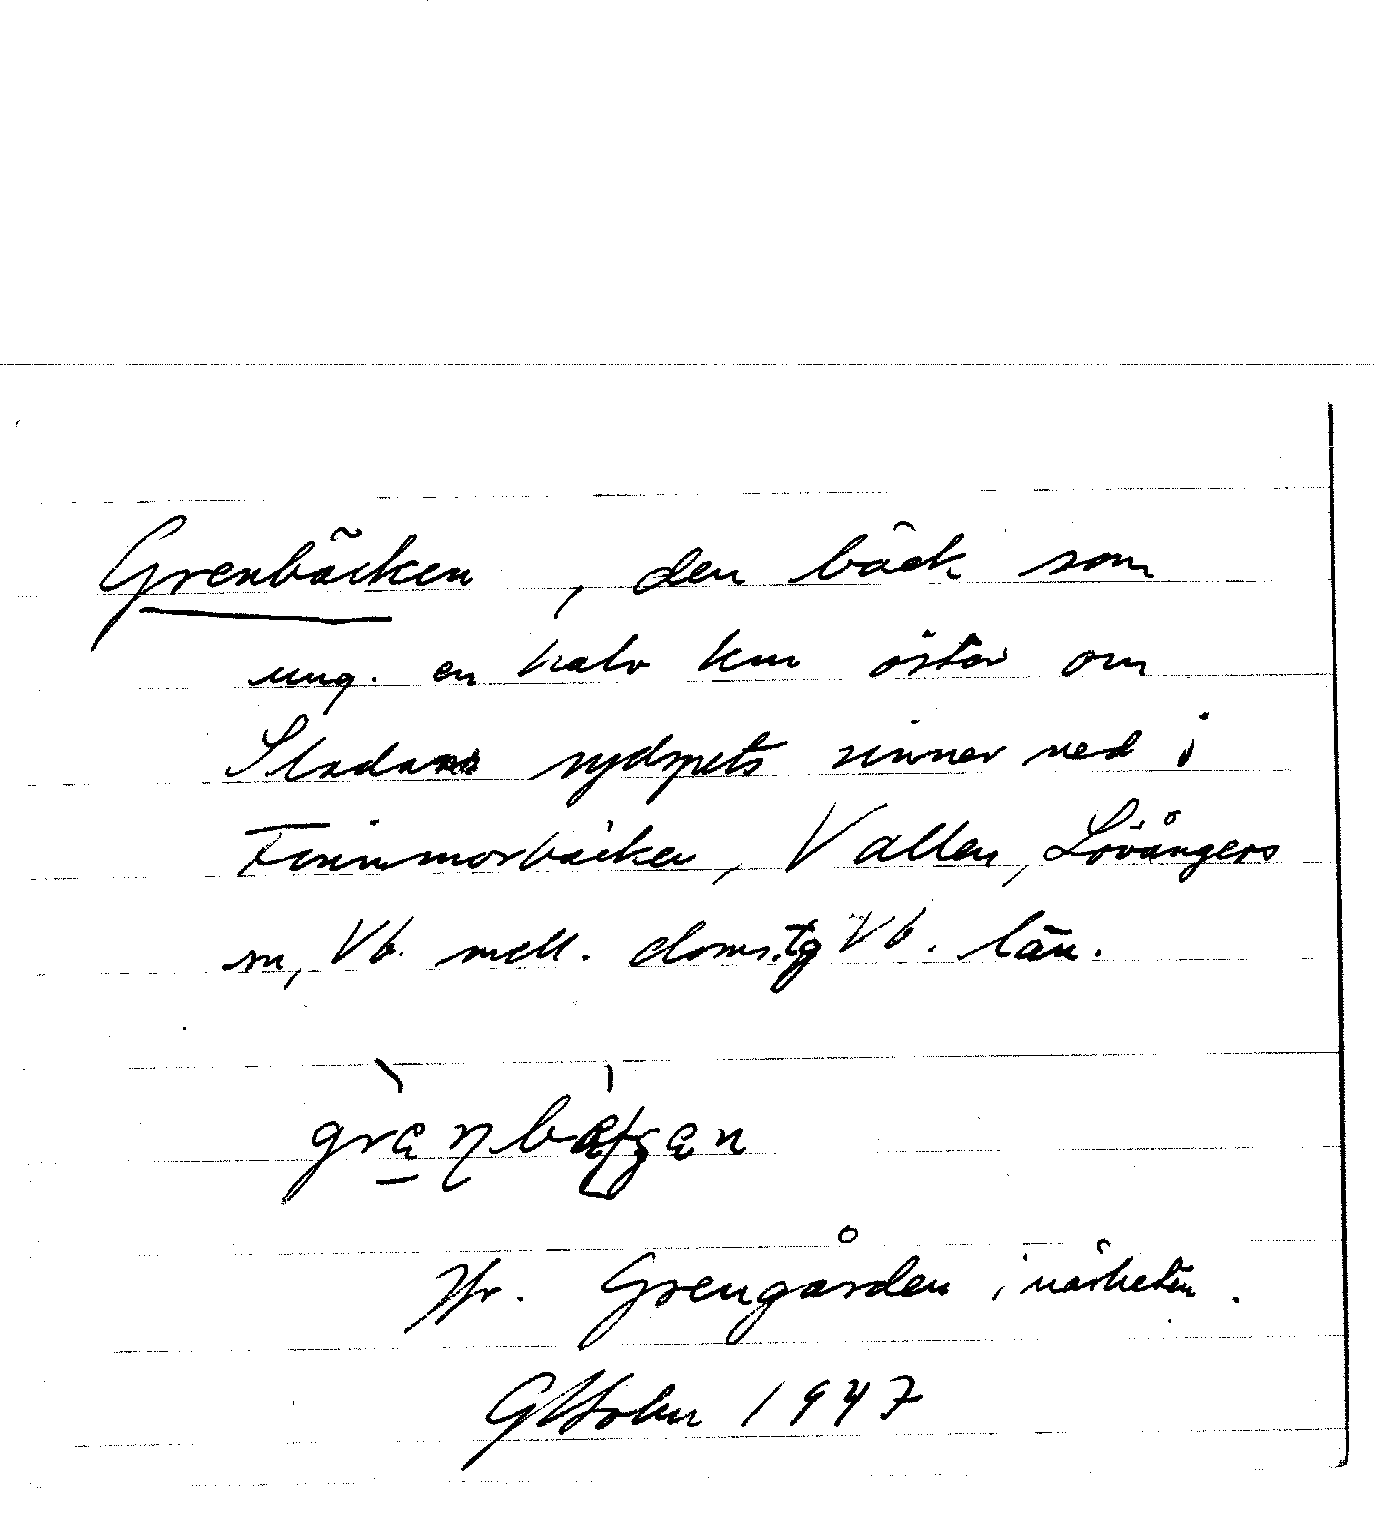 Grenbäcken, den bäck som
ung. en halv km öster om
Sladans sydspets rinner ned i
Finnmorbäcken, Vallen, Lövångers
sn, Vb. mell. doms.tg Vb. län.
Jfr. Grengården i närheten.
GHolm 1947